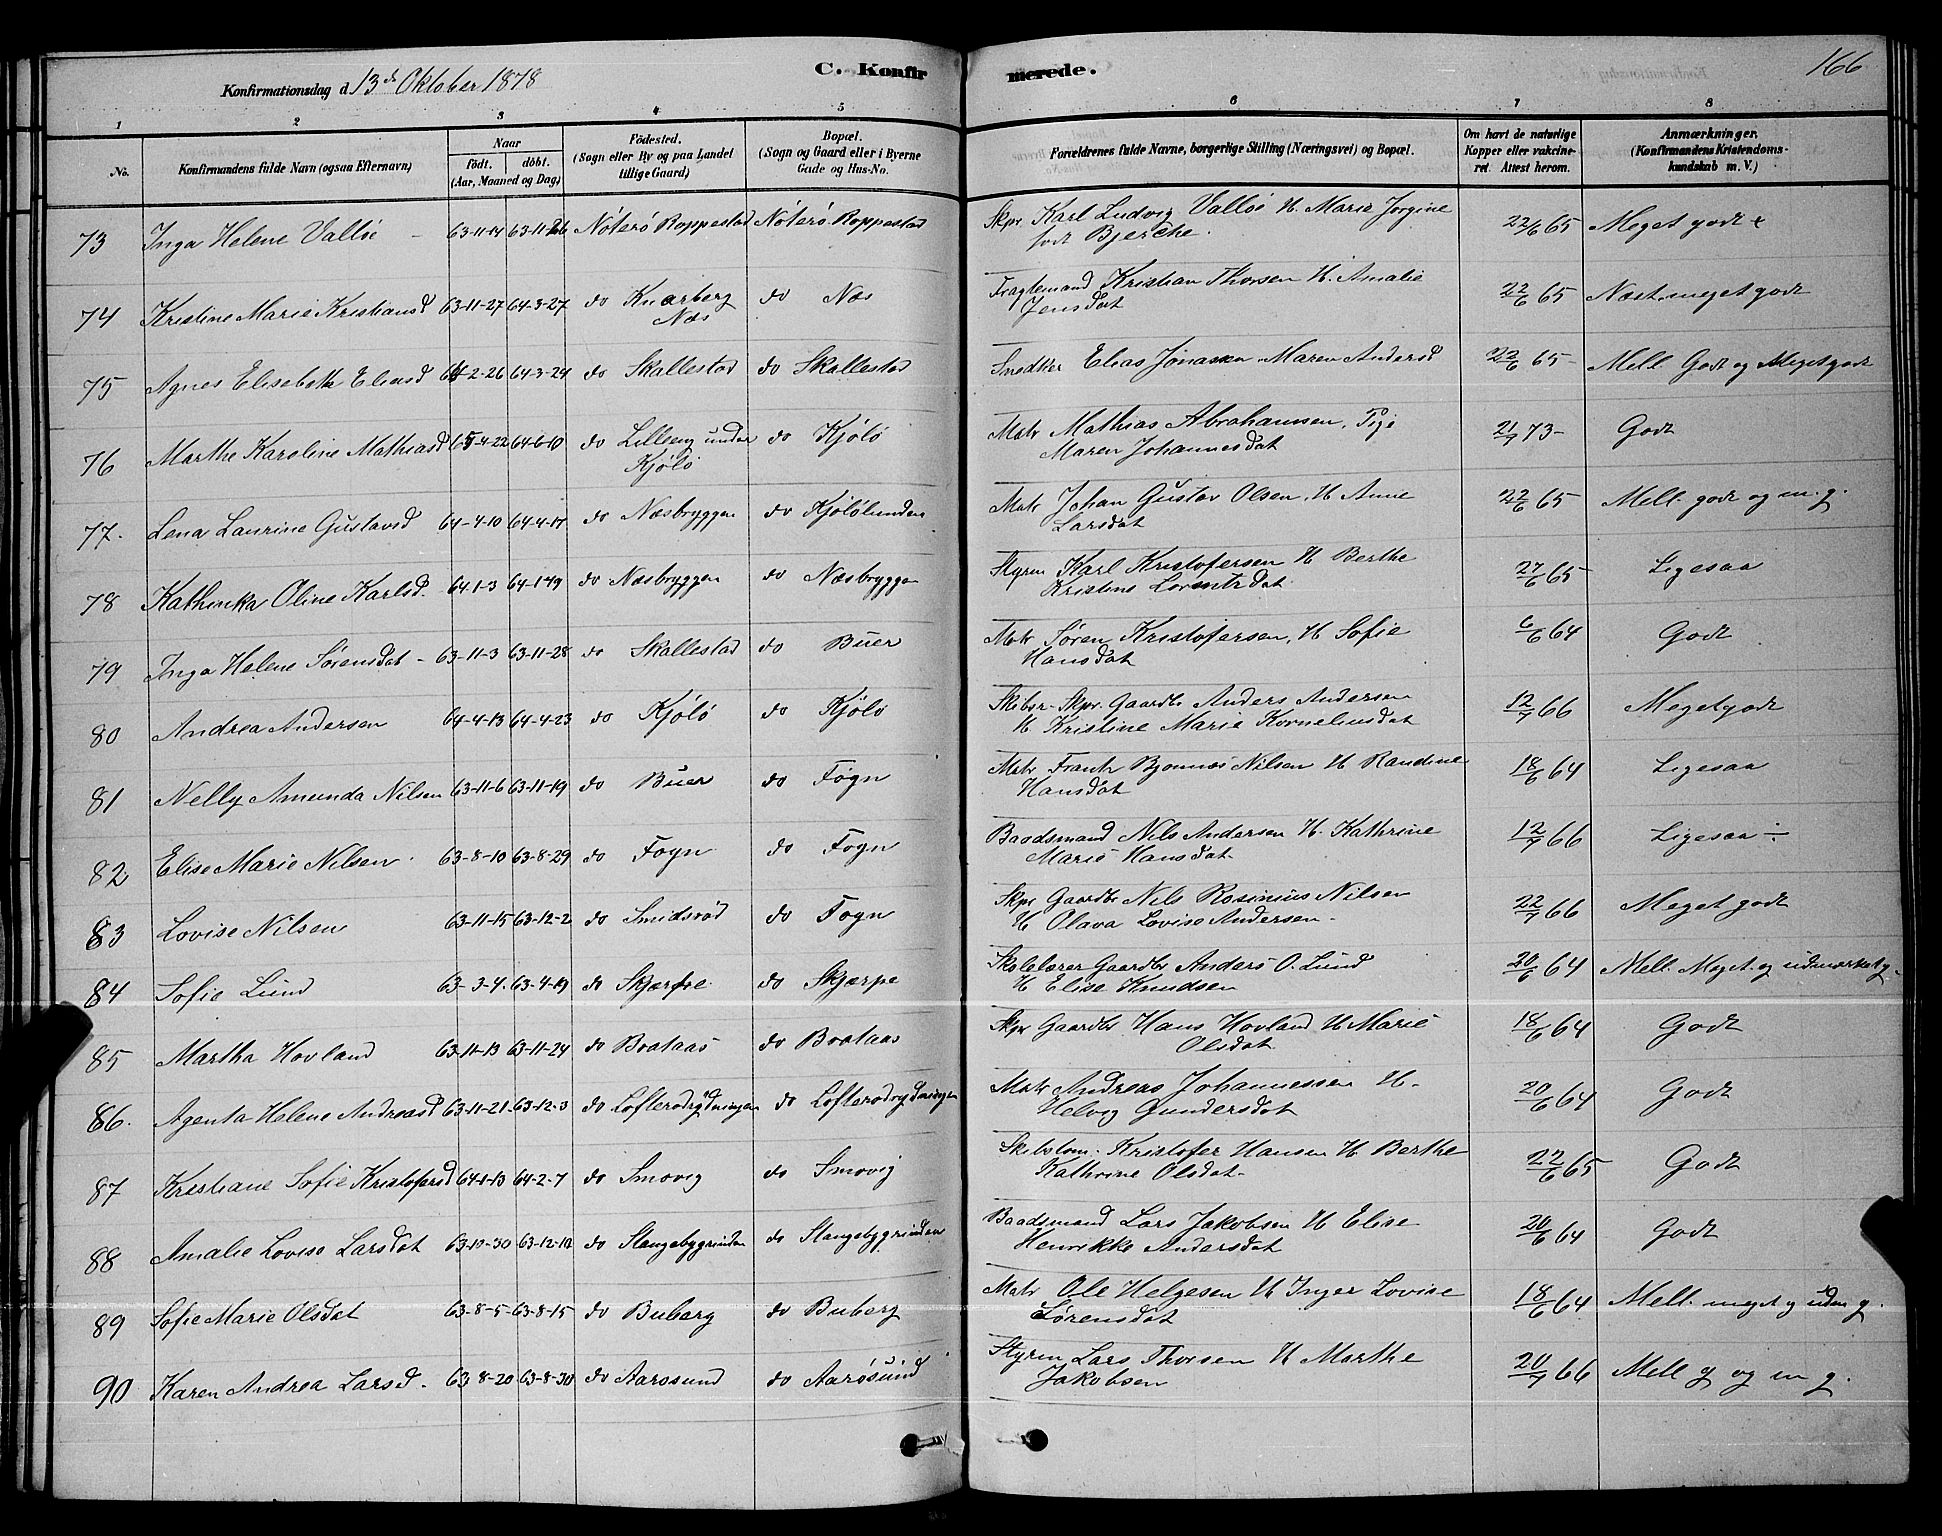 C. Konfirmerede.
166
Konfirmationsdag d. 13de Oktober 1878
1 2 3 4 5 6 7 8
No.
Konfirmandens fulde Navn (ogsaa Efternavn)
Naar
födt. döbt.
(Aar, Maaned og Dag)
Födested.
(Sogn eller By og paa Landet
tillige Gaard)
Bopæl.
(Sogn og Gaard eller i Byerne
Gade og Hus-No.
Forældrenes fulde Navne, borgerlige Stilling (Næringsvei) og Bopæl.
Om havt de naturlige
Kopper eller vakcine-
ret. Attest herom.
Anmærkninger.
(Konfirmandens Kristendoms-
kundskab m. V.)
73 Inga Helene Valløe 63-11-14 63-11-26 Nöterö Roppestad Nöterö Roppestad Skpr Karl Ludvig Valløe H. Marie Jorgine
fodt Bjerche. 22/6 65 Meget godt
74 Kristine Marie Kristiansd 63-11-27 64-3-27 do Knarberg
Næs do Næs Fragtemand Kristian Thorsen H. Amalie
Jensdat 22/6 65 Næst meget godt
75 Agnes Elisebeth Eliasd 64-2-26 64-3-24 do Skallestad do Skallestad Snedker Elias Jonassen Maren Andersd 22/6 65 Mell Godt og Meget godt
76 Marthe Karoline Mathiasd 65-4-22 64-6-10 do Lilleeng under
Kjölö do Kjölö Matr Mathias Abrahamsen, Pige
Maren Johannesdat 21/7 73 Godt
77. Lena Laurine Gustavsd 64-4-10 64-4-17 do Næsbryggen do Kjölölunden Matr Johan Gustav Olsen, H Anne
Larsdat 22/6 65 Mell. godt og m. g.
78 Kathinka Oline Karlsd. 64-1-3 64-1-49 do Næsbryggen do Næsbryggen Styrm Karl Kristofersen H Berthe
Kristine Lorentzdat 27/6 65 Ligesaa
79 Inga Helene Sörensdat 63-11-3 63-11-28 do Skallestad do Buer Matr Sören Kristofersen, H Sofie
Hansdat 6/6 64 Godt
80 Andrea Andersen 64-4-13 64-4-23 do Kjölö do Kjölö Skibsr. Skpr. Gaardbr Anders Andersen
H. Kristine Marie Korneliusdat 12/7 66 Meget godt
81 Nelly Amunda Nilsen 63-11-6 63-11-19 do Buer do Fögn Matr Frantz Bjonnes Nilsen H Randine
Hansdat 18/6 64 Ligesaa
82 Elise Marie Nilsen 63-8-10 63-8-29 do Föyn do Föyn Baadsmand Nils Andersen H. Kathrine
Marie Hansdat 12/7 66 Ligesaa ÷
83 Lovise Nilsen 63-11-15 63-12-2 do Smidsröd do Föyn Skpr Gaardbr Nils Rosinius Nilsen
H Olava Lovise Andersen 22/7 66 Meget godt
84 Sofie Lund 63-3-4. 63-4-19 do Skjærpe do Skjærpe Skolelærer Gaardbr Anders O. Lund
H Elise Knudsen 20/6 64 Mell. Meget og udmærket g.
85 Martha Hovland 63-11-13 63-11-24 do Brataas do Brataas Skpr Gaardbr Hans Hovland H Marie
Olsdat 18/6 64 Godt
86. Agenta Helene Andreasd 63-11-21 63-12-3 do Lofterödrydningen do Lofterodrydningen Matr Andreas Johannessen H.
Helvig Gundersdat 20/6 64 Godt
87 Kristiane Sofie Kristofersd 64-1-13 64-2-7 do Smovig do Smovig Skibstøm. Kristofer Hansen H Berthe
Kathrine Olsdat 22/6 65 Godt
88 Amalie Lovise Larsdat 63-10-30 63-12-10 do Stangebygrinden do Stangebygrinden Baadsmand Lars Jakobsen H Elise
Henrikke Andersdat 20/6 64 Godt
89 Sofie Marie Olsdat 63-8-5 63-8-15 do Buberg do Buberg Matr Ole Helgesen H Inger Lovise
Sörensdat 18/6 64 Mell. meget og udm g.
90 Karen Andrea Larsd. 63-8-20 63-8-30 do Aarosund do Aarösund Styrm Lars Thorsen H Marthe
Jakobsen 20/7 66 Mell g og m g.